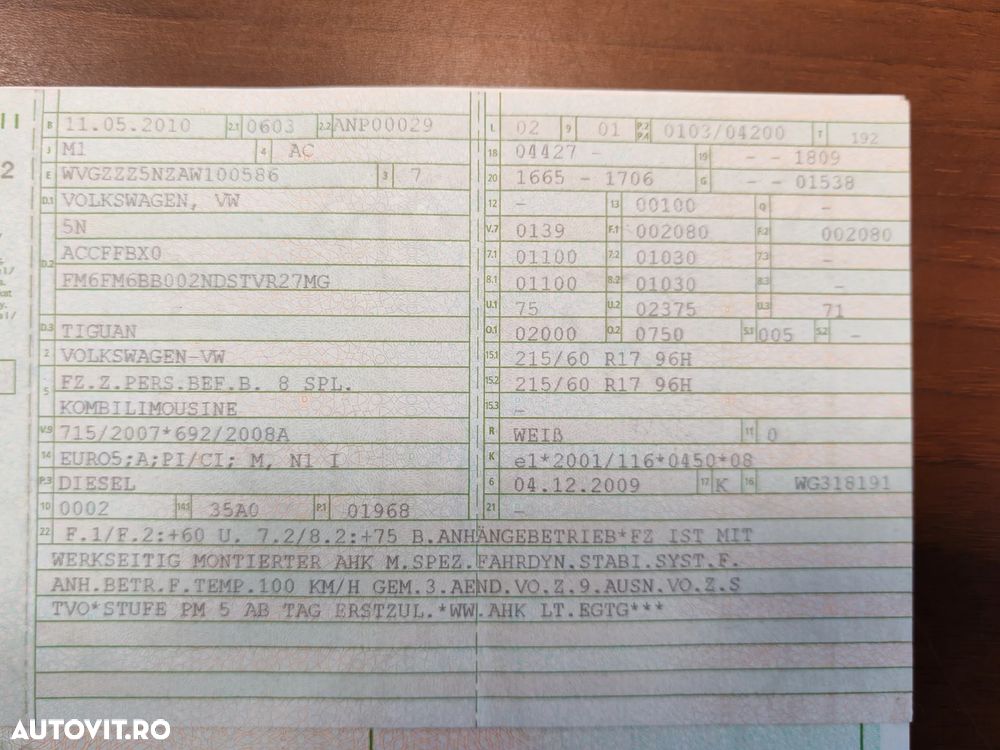 B 11.05.2010 2.1 0603 2.2 ANP00029
J M1 4 AC
E WVGZZZ5NZAW100586 3 7
D.1 VOLKSWAGEN, VW
5N
D.2 ACCFFBX0
FM6FM6BB002NDSTVR27MG
D.3 TIGUAN
2 VOLKSWAGEN-VW
5 FZ.Z.PERS.BEF.B. 8 SPL.
KOMBILIMOUSINE
V.9 715/2007*692/2008A
14 EURO5;A;PI/CI; M, N1 I
P.3 DIESEL
10 0002 14.1 35A0 P.1 01968
L 02 9 01 P.2 P.4 0103/04200 T 192
18 04427 - 19 - - 1809
20 1665 - 1706 G - - 01538
12 - 13 00100 Q -
V.7 0139 F.1 002080 F.2 002080
7.1 01100 7.2 01030 7.3 -
8.1 01100 8.2 01030 8.3 -
U.1 75 U.2 02375 U.3 71
O.1 02000 O.2 0750 S.1 005 S.2 -
15.1 215/60 R17 96H
15.2 215/60 R17 96H
15.3 -
R WEIß 11 0
K e1*2001/116*0450*08
6 04.12.2009 17 K 16 WG318191
21 -
22 F.1/F.2:+60 U. 7.2/8.2:+75 B.ANHÄNGEBETRIEB*FZ IST MIT
WERKSEITIG MONTIERTER AHK M.SPEZ.FAHRDYN.STABI.SYST.F.
ANH.BETR.F.TEMP.100 KM/H GEM.3.AEND.VO.Z.9.AUSN.VO.Z.S
TVO*STUFE PM 5 AB TAG ERSTZUL.*WW.AHK LT.EGTG***
AUTOVIT.RO